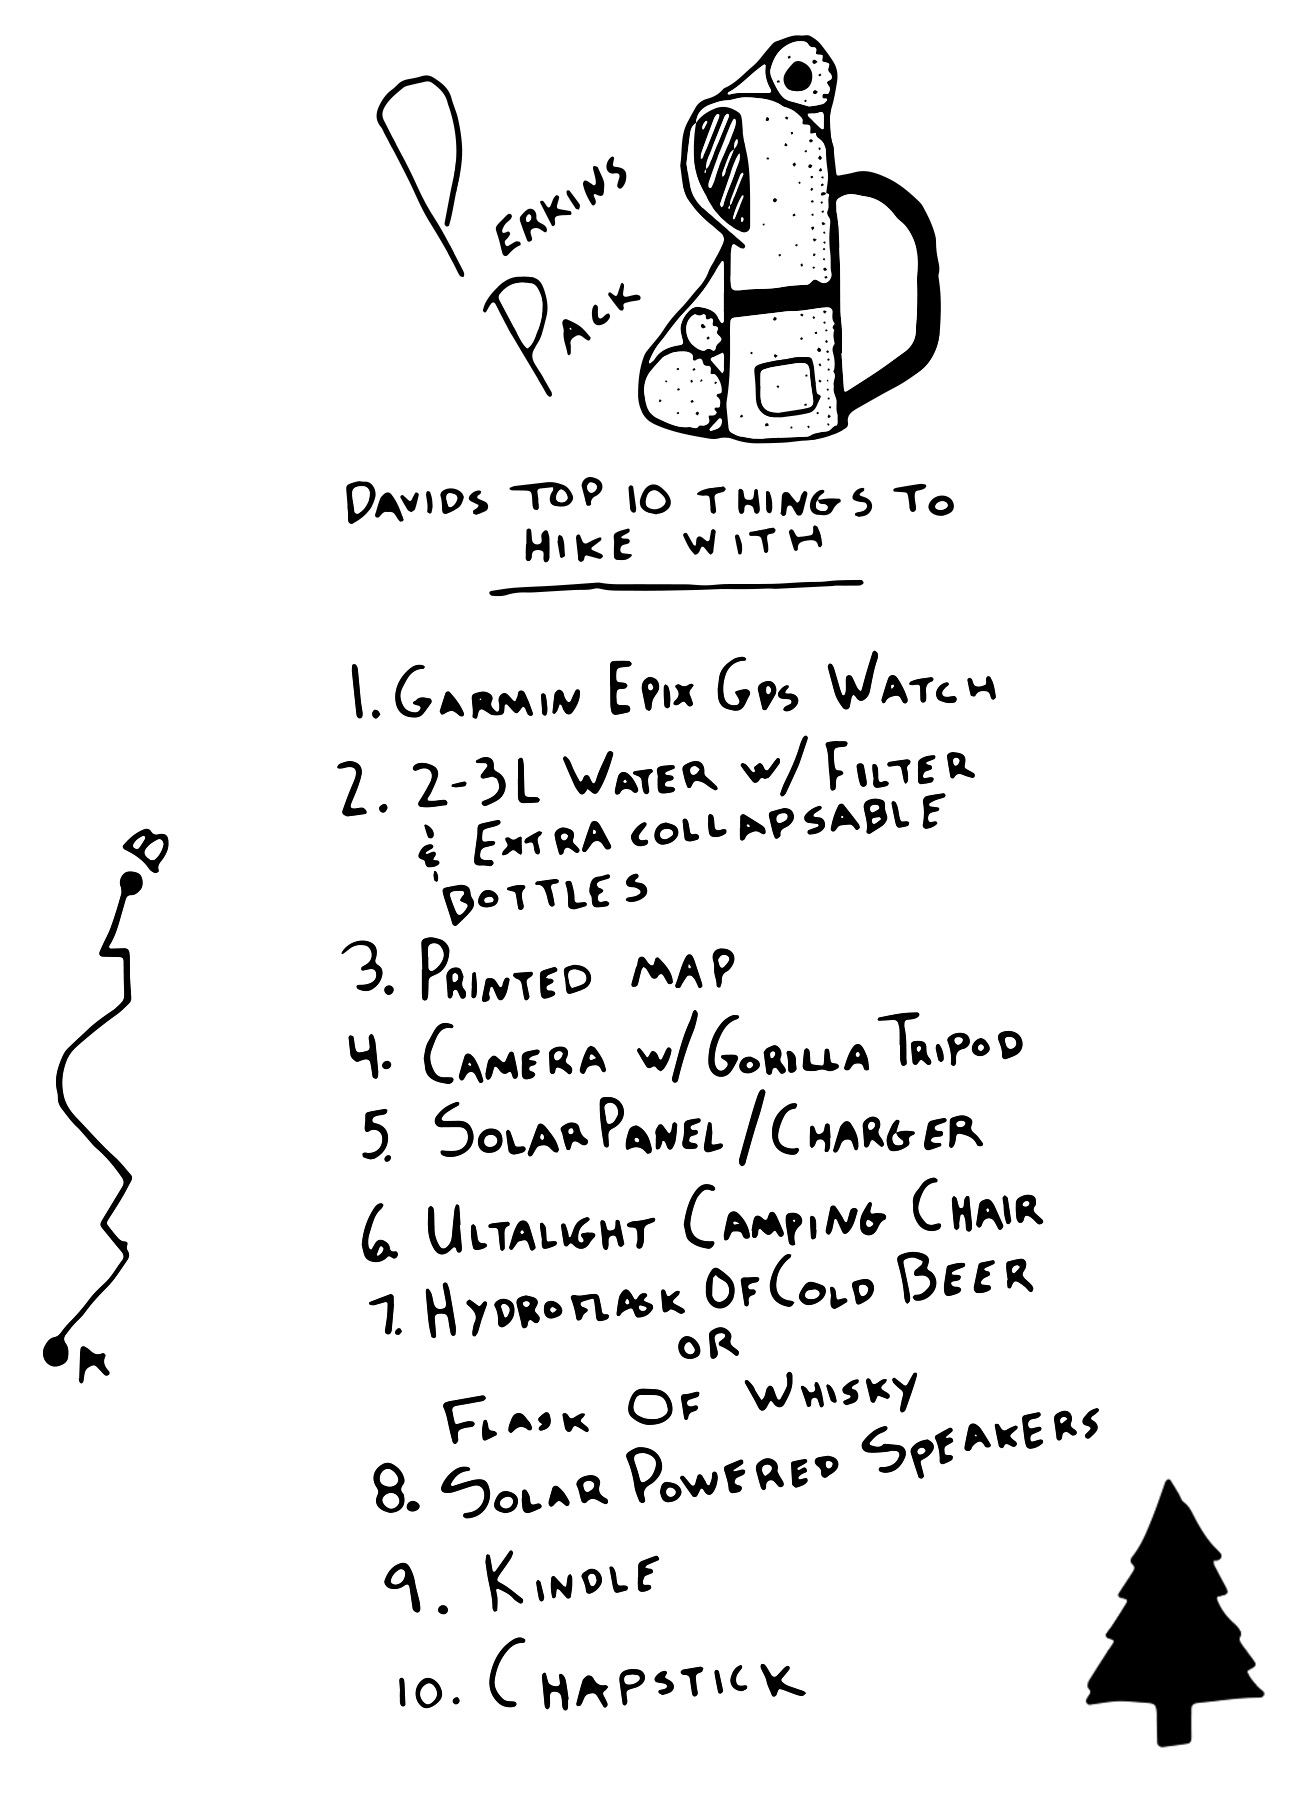 PERKINS
PACK
DAVIDS TOP 10 THINGS TO
HIKE WITH
1. GARMIN EPIX GPS WATCH
2. 2-3L WATER W/ FILTER
& EXTRA COLLAPSABLE
BOTTLES
3. PRINTED MAP
4. CAMERA W/ GORILLA TRIPOD
5. SOLAR PANEL / CHARGER
6. ULTALIGHT CAMPING CHAIR
7. HYDROFLASK OF COLD BEER
OR
FLASK OF WHISKY
8. SOLAR POWERED SPEAKERS
9. KINDLE
10. CHAPSTICK
B
A